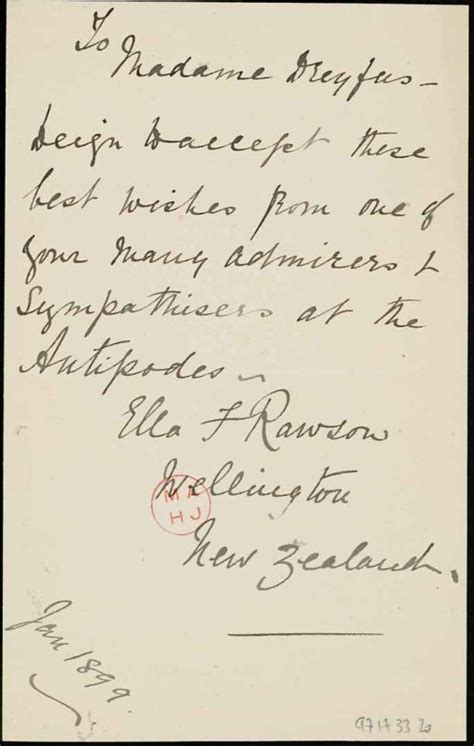 To
Madame Dreyfus—
Deign to accept these
best wishes from one of
your many admirers &
Sympathisers at the
Antipodes—
Ella F Rawson
Wellington
MA
HJ
New Zealand.
Jan 1899
97 17 33 20